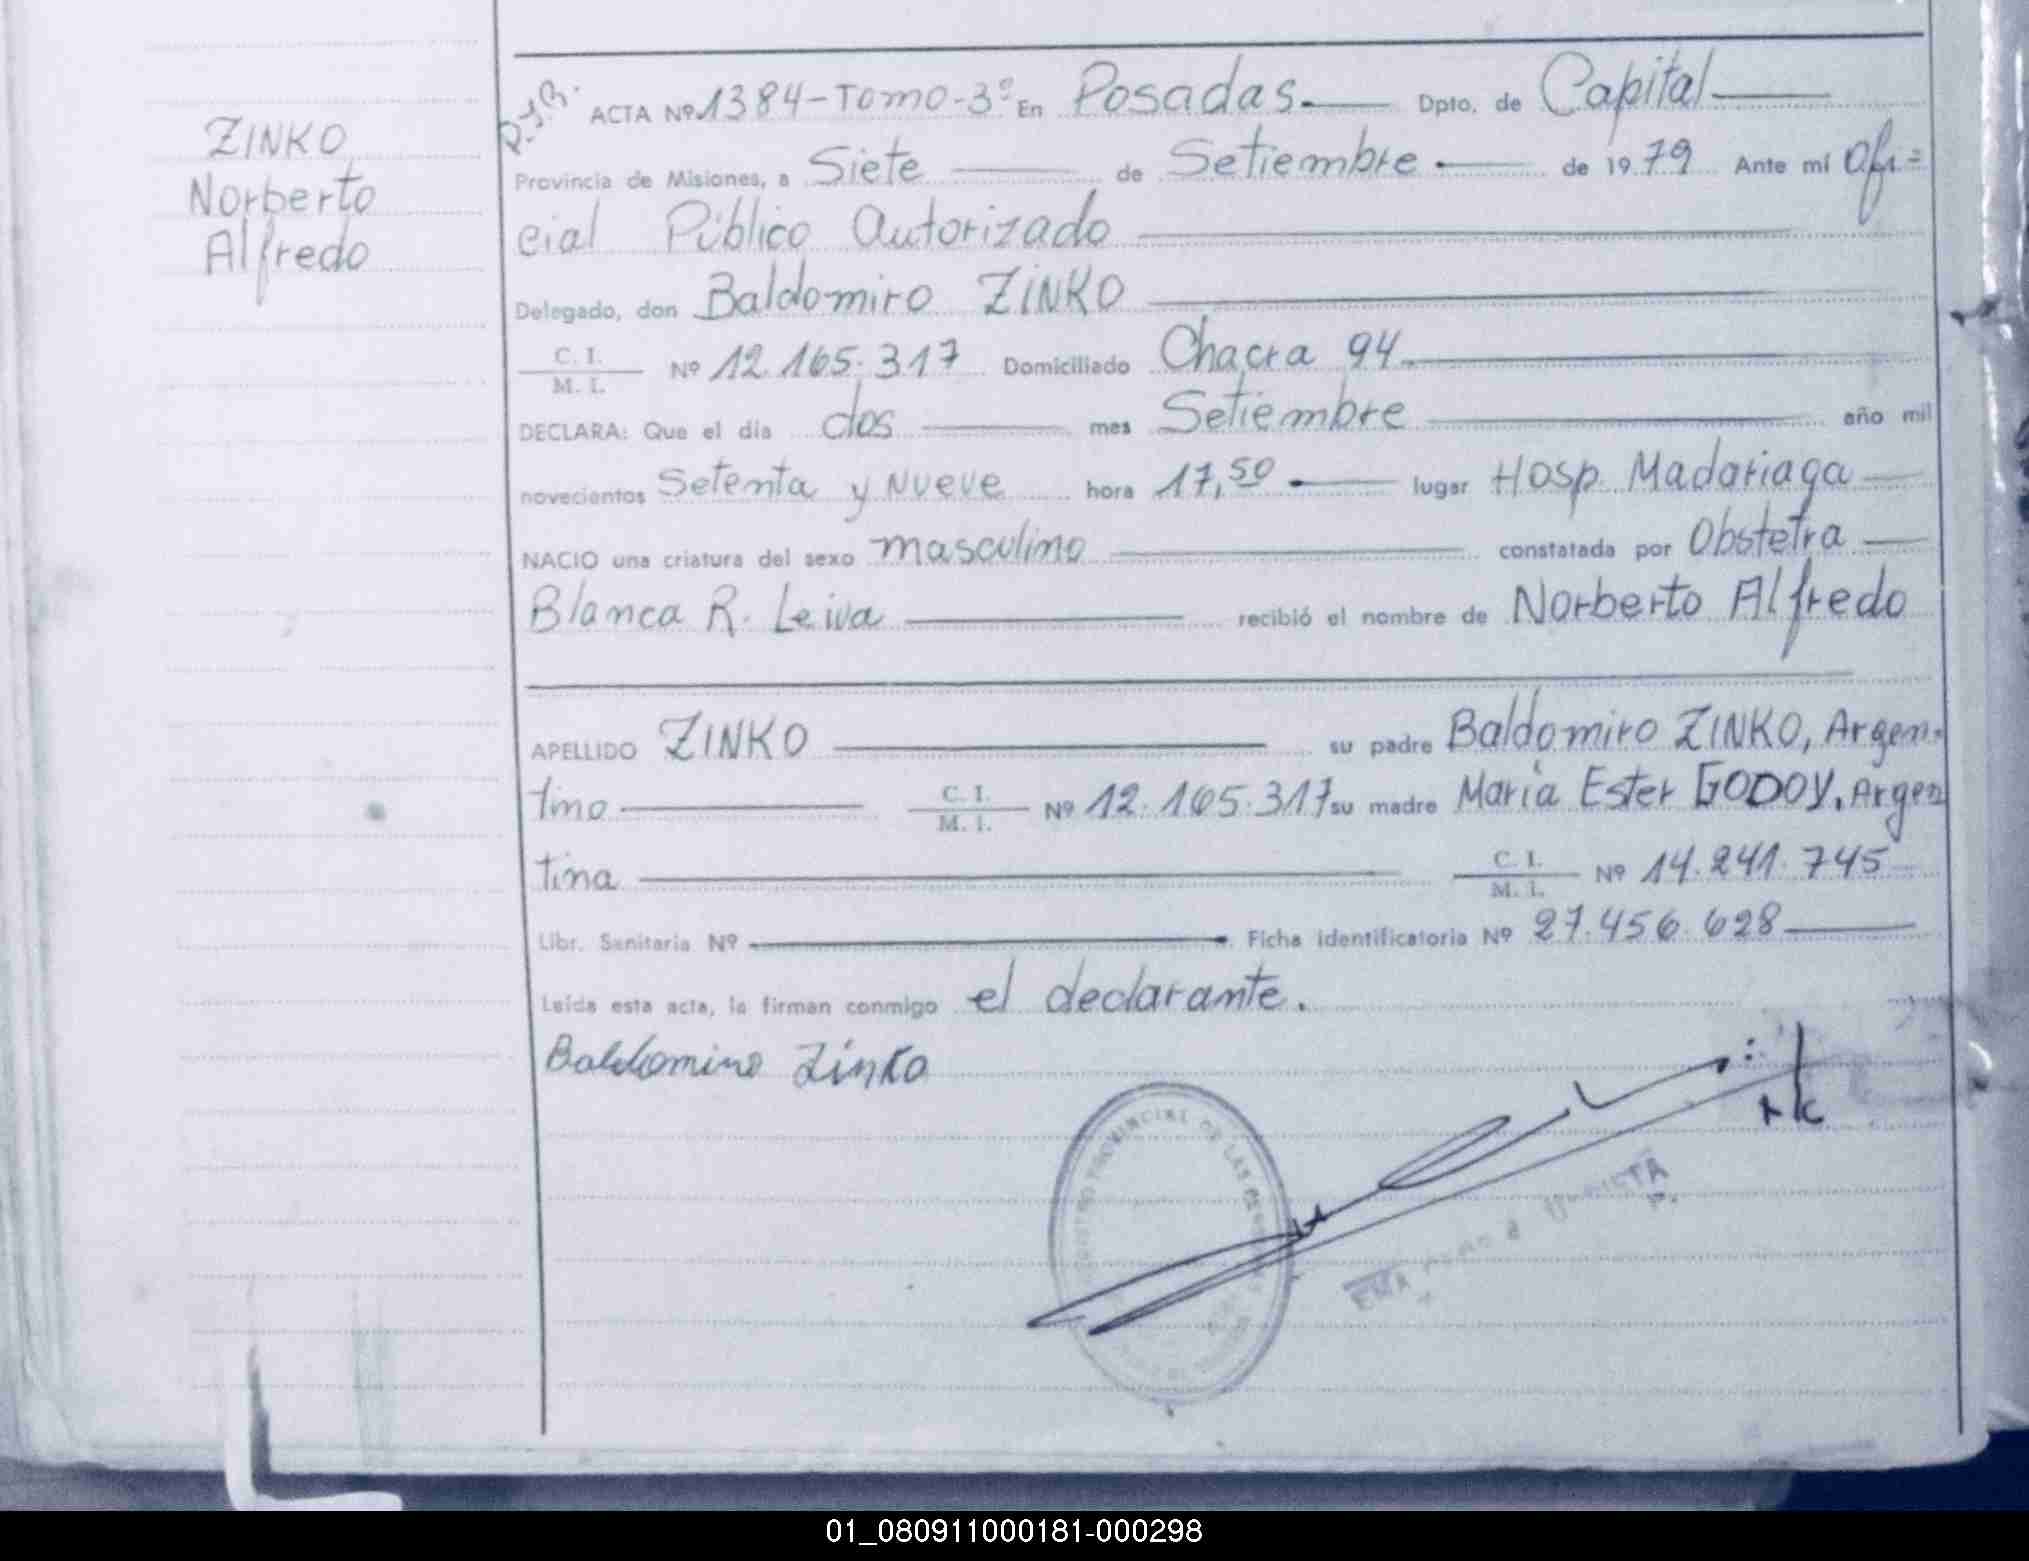 ZINKO
Norberto
Alfredo
ACTA Nº 1384-Tomo-3º En Posadas.— Dpto. de Capital—
Provincia de Misiones, a Siete — de Setiembre — de 1979 Ante mí Ofi=
cial Público Autorizado —
Delegado, don Baldomiro ZINKO —
C. I.
M. I. Nº 12.165.317 Domiciliado Chacra 94.—
DECLARA: Que el día dos — mes Setiembre — año mil
novecientos Setenta y Nueve hora 17,50 — lugar Hosp. Madariaga —
NACIO una criatura del sexo masculino — constatada por Obstetra —
Blanca R. Leiva — recibió el nombre de Norberto Alfredo
APELLIDO ZINKO — su padre Baldomiro ZINKO, Argen-
tino — C. I. M. I. Nº 12.165.317 su madre María Ester GODOY, Argen
tina — C. I. M. I. Nº 14.241.745
Libr. Sanitaria Nº — Ficha identificatoria Nº 27.456.628 —
Leída esta acta, la firman conmigo el declarante.
Baldomiro Zinko
PROVINCIAL DE LAS
01_080911000181-000298